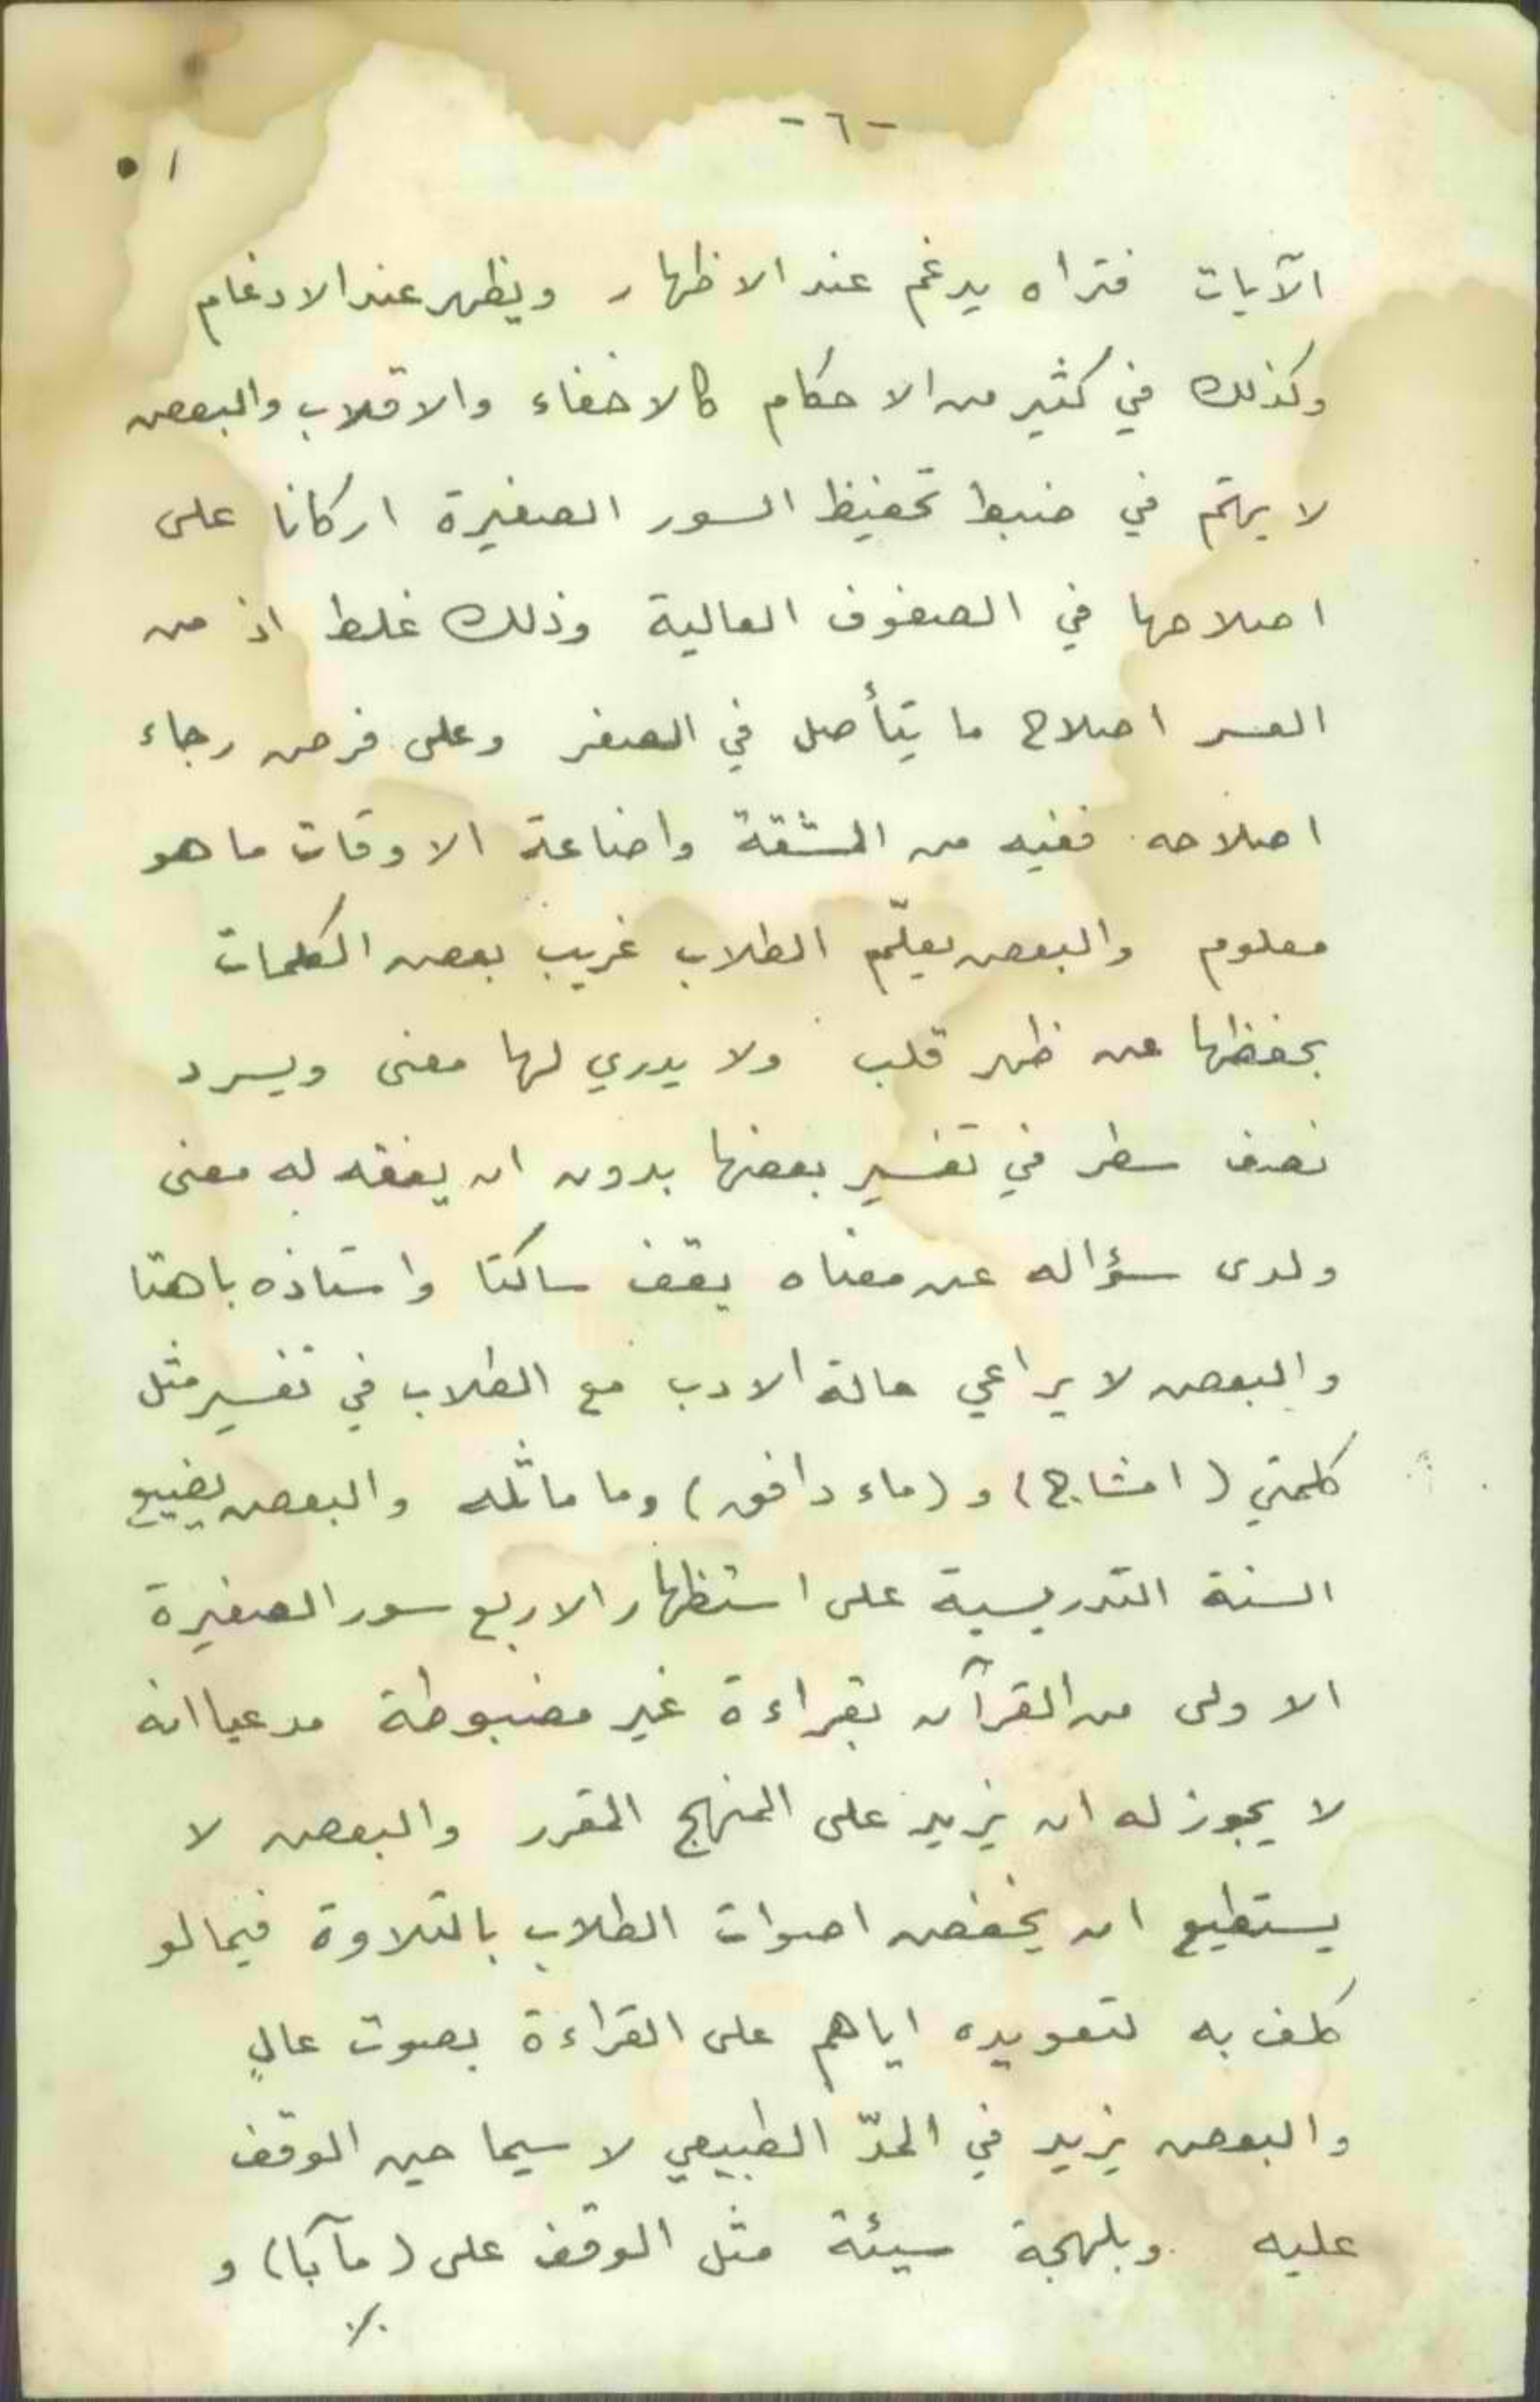 -٦-
٥١
الآيات فتراه يدغم عند الاظهار ويظهر عند الادغام
وكذلك في كثير من الاحكام كالاخفاء والاقلاب والبعض
لا يهتم في ضبط تحفيظ السور الصغيرة اركانا على
اصلاحها في الصفوف العالية وذلك غلط اذ من
العسر اصلاح ما يتأصل في الصغر وعلى فرض رجاء
اصلاحه ففيه من المشقة واضاعة الاوقات ما هو
معلوم والبعض يعلّم الطلاب غريب بعض الكلمات
بحفظها عن ظهر قلب ولا يدري لها معنى ويسرد
نصف سطر في تفسير بعضها بدون ان يفقه له معنى
ولدى سؤاله عن معناه يقف ساكتا واستاذه باهتا
والبعض لا يراعي حالة الادب مع الطلاب في تفسير مثل
كلمتي (امشاج) و (ماء دافق) وما ماثله والبعض يضيع
السنة التدريسية على استظهار الاربع سور الصغيرة
الاولى من القرآن بقراءة غير مضبوطة مدعيا انه
لا يجوز له ان يزيد على المنهج المقرر والبعض لا
يستطيع ان يخفض اصوات الطلاب بالتلاوة فيما لو
كلف به لتعويده اياهم على القراءة بصوت عالٍ
والبعض يزيد في المدّ الطبيعي لا سيما حين الوقف
عليه وبلهجة سيئة مثل الوقف على (مآبا) و
./.